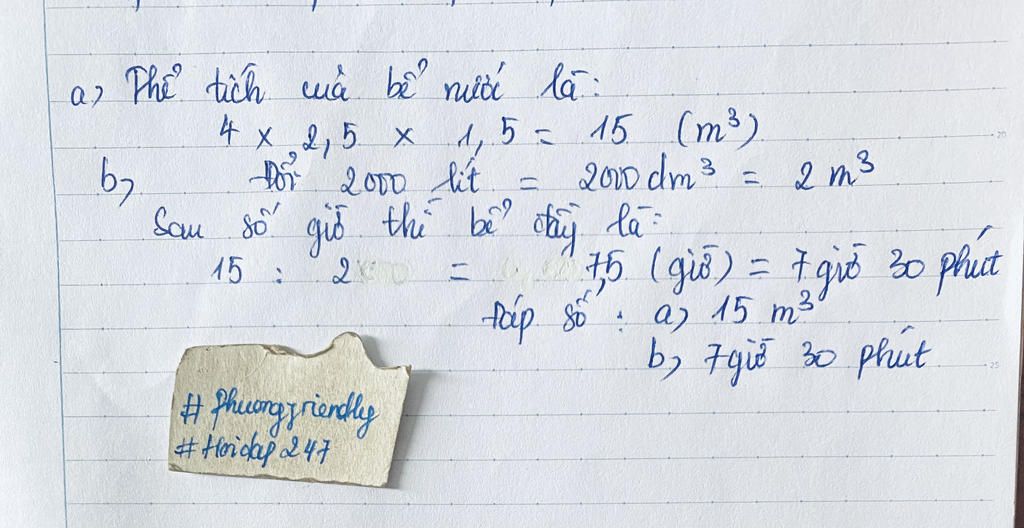 a) Thể tích của bể nước là:
4 x 2,5 x 1,5 = 15 (m³)
b) Đổi 2000 lít = 2000 dm³ = 2 m³
Sau số giờ thì bể đầy là:
15 : 2 = 7,5 (giờ) = 7 giờ 30 phút
Đáp số : a) 15 m³
b) 7 giờ 30 phút
# phuongfriendly
# Hoidap 247